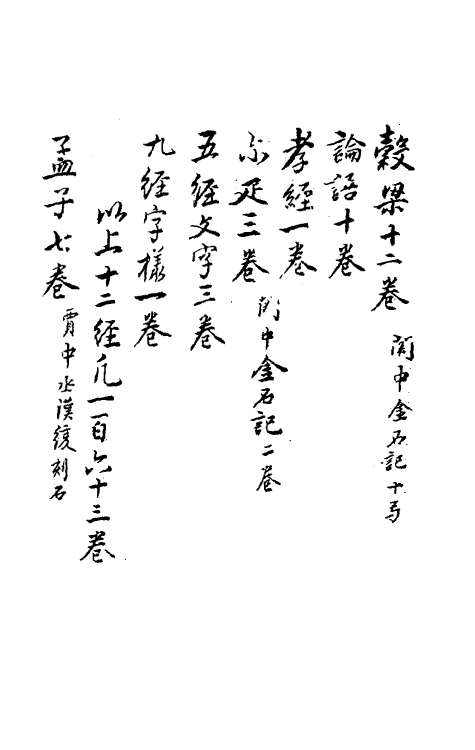 穀梁十二卷 関中金石記十弓
論語十卷
孝經一卷
尒疋三卷 関中金石記二卷
五經文字三卷
九経字様一卷
以上十二経凡一百六十三卷
孟子七卷 賈中丞漢復刻石